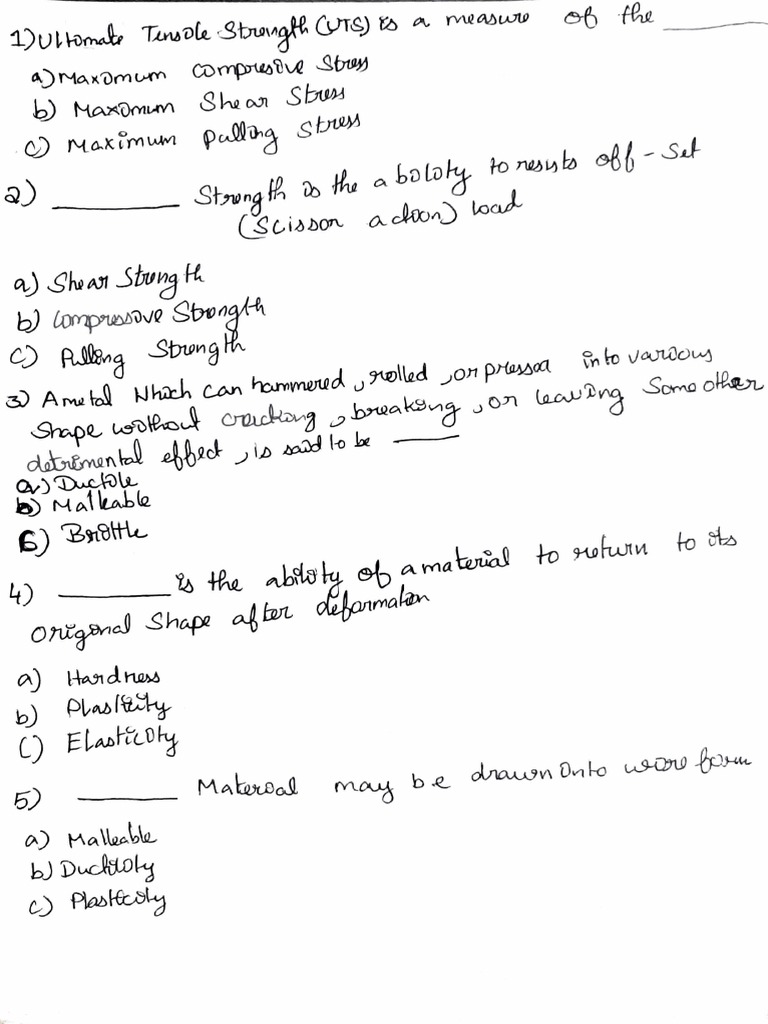 1) Ultimate Tensile Strength (UTS) is a measure of the ________
a) Maximum compresive Stress
b) Maximum Shear Stress
c) Maximum pulling Stress
2) ________ Strength is the ability to resists off-set
(Scissor action) load
a) Shear Strength
b) Compressive Strength
c) Pulling Strength
3) A metal Which can hammered, rolled, or pressed into various
Shape without cracking, breaking, or leaving Some other
detrimental effect, is said to be ____
a) Ductile
b) Malleable
c) Brittle
4) ________ is the ability of a material to return to its
original Shape after deformation
a) Hardness
b) Plasticity
c) Elasticity
5) ________ Material may be drawn into wire form
a) Malleable
b) Ductility
c) Plasticity